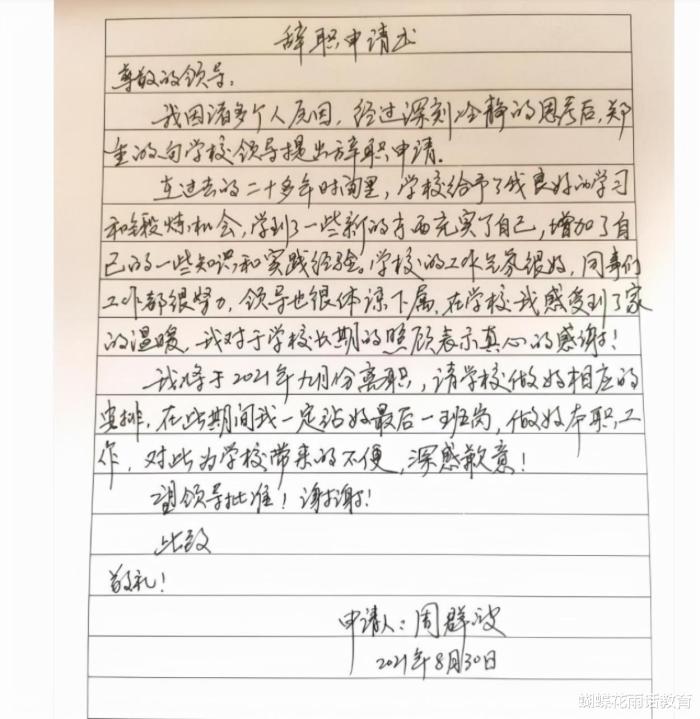 辞职申请书
尊敬的领导:
我因诸多个人原因,经过深刻冷静的思考后,郑
重的向学校领导提出辞职申请.
在过去的二十多年时间里,学校给予了我良好的学习
和锻炼机会,学到了一些新的东西充实了自己,增加了自
己的一些知识和实践经验。学校的工作气氛很好,同事们
工作都很努力,领导也很体谅下属,在学校我感受到了家
的温暖,我对于学校长期的照顾表示真心的感谢!
我将于2021年九月份离职,请学校做好相应的
安排,在此期间我一定站好最后一班岗,做好本职工
作,对此为学校带来的不便,深感歉意!
望领导批准!谢谢!
此致
敬礼!
申请人:周群波
2021年8月30日
蝴蝶花雨话教育